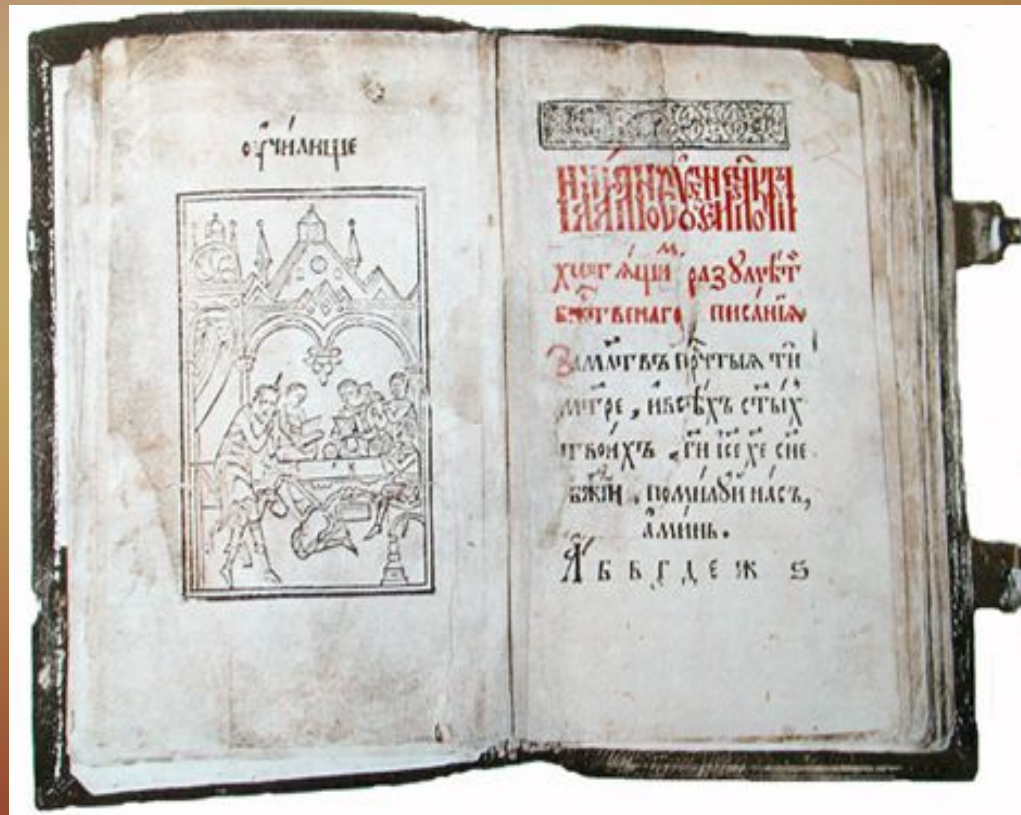 оу҆чи́лище
хотѧ́щиⷨ разꙋмѣ́тⷩ҇
бжⷭ҇твенаго писа́нїѧ
За мл҃твъ прⷱ҇тыѧ тѝ
мт҃ре, и҆всѣ́хъ ст҃ы́х
твои́хъ, гн҃ і҆се҃ хе҃ сн҃е
бж҃їи, поми́лꙋй на́съ,
а҆ми́нь.
А҆ Б В Г Д Е Ж Ѕ